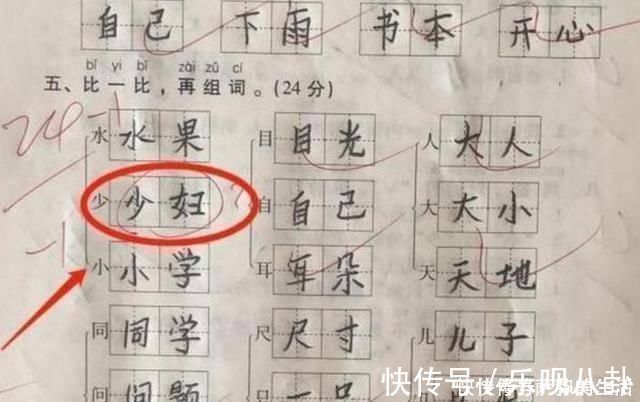 自己 下雨 书本 开心
bǐ yi bǐ zài zǔ cí
五、比一比，再组词。(24分)
24-1
水 水果 目 目光 人 大人
少 少妇 自 自己 大 大小
-1
小 小学 耳 耳朵 天 天地
同 同学 尺 尺寸 儿 儿子
问 问题 只 一只
快传号／乐呗八卦